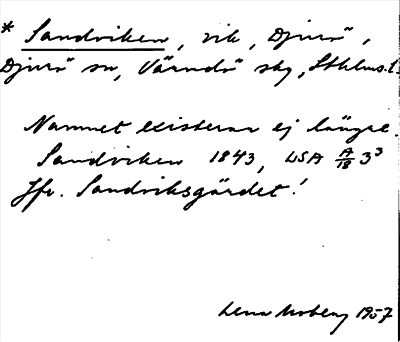 * Sandviken, vik, Djurö,
Djurö sn, Värmdö skg, Sthlms l.
Namnet existerar ej längre.
Sandviken 1843, LSA A/18 3³
Jfr. Sandviksgärdet!
Lena Moberg 1957